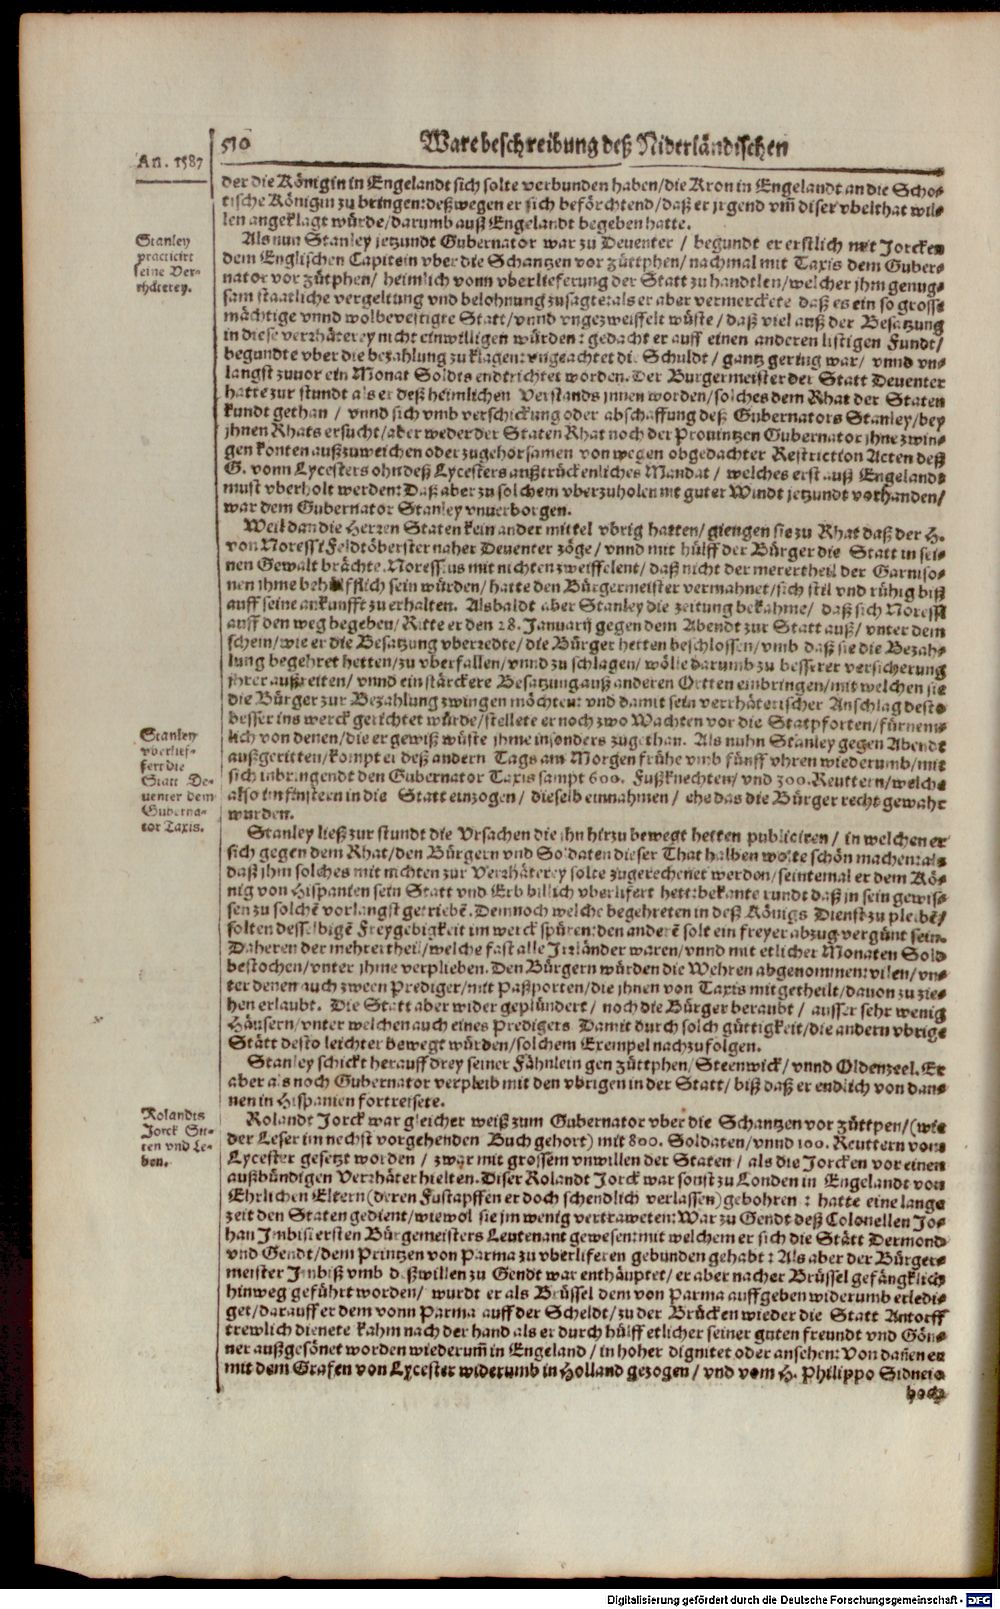 510 Ware beschreibung deß Niderländischen
An. 1587
der die Königin in Engelandt sich solte verbunden haben/die Kron in Engelandt an die Scho-
tische Königin zu bringen: deßwegen er sich beförchtend/daß er jrgend vm̃ diser vbelthat wil-
len angeklagt würde/darumb auß Engelandt begeben hatte.
Stanley
practicirt
seine Ver-
rhäterey.
Als nun Stanley jetzundt Gubernator war zu Deuenter / begundt er erstlich mit Jorcken
dem Englischen Capitein vber die Schantzen vor züttphen/ nachmal mit Taxis dem Guber-
nator vor zütphen/ heimlich vonn vberlieferung der Statt zu handtlen/welcher jhm genug-
sam staatliche vergeltung vnd belohnung zusagte: als er aber vermerckete daß es ein so grosse
mächtige vnnd wolbevestigte Statt/vnnd vngezweiffelt wüste / daß viel auß der Besatzung
in diese verrhäterey nicht einwilligen würden: gedacht er auff einen anderen listigen Fundt/
begundte vber die bezahlung zu klagen: vngeachtet die Schuldt / gantz gering war/ vnnd vn-
langst zuvor ein Monat Soldts endtrichtet worden. Der Burgermeister der Statt Deuenter
hatte zur stundt als er deß heimlichen Verstands jnnen worden/solches dem Rhat der Staten
kundt gethan / vnnd sich vmb verschickung oder abschaffung deß Gubernators Stanley/bey
jhnen Rhats ersucht/aber weder der Staten Rhat noch der Prouintzen Gubernator jhne zwin-
gen konten außzuweichen oder zugehorsamen von wegen obgedachter Restriction Acten deß
G. vonn Lycesters ohn deß Lycesters außtrückenliches Mandat / welches erst auß Engeland-
must vberholt werden: Daß aber zu solchem vberzuholen mit guter Windt jetzundt vorhanden/
war dem Gubernator Stanley vnuerborgen.
Weil dan die Herren Staten kein ander mittel vbrig hatten/ giengen sie zu Rhat daß der H.
von Noress i Feldtöberster naher Deuenter zöge/ vnnd mit hülff der Bürger die Statt in sei-
nen Gewalt brächte. Noressius mit nichten zweiffelent/ daß nicht der merertheil der Garniso-
nen jhme behülfflich sein würden/ hatte den Bürgermeister vermahnet/sich stil vnd rühig biß
auff seine ankunfft zu erhalten. Alsbaldt aber Stanley die zeitung bekahme/ daß sich Noress
auff den weg begeben/ Ritte er den 28. Januarij gegen dem Abendt zur Statt auß/ vnter dem
schein/wie er die Besatzung vberredte/die Bürger hetten beschlossen/vmb daß sie die Bezah-
lung begehret hetten/zu vberfallen/vnnd zu schlagen/ wölle darumb zu besserer versicherung
jhrer außreiten/ vnnd ein stärckere Besatzung auß anderen Ortten einbringen/mit welchen sie
die Bürger zur Bezahlung zwingen möchten: vnd damit sein verrhäterischer Anschlag desto
besser ins werck gerichtet würde/stellete er noch zwo Wachten vor die Statpforten/fürnem-
lich von denen/die er gewiß wüste jhme insonders zugethan. Als nuhn Stanley gegen Abendt
Stanley
vberlief-
fert die
Statt De-
uenter dem
Guberna-
tor Taxis.
außgeritten/kompt er deß andern Tags am Morgen frühe vmb fünff vhren wiederumb/mit
sich inbringendt den Gubernator Taxis sampt 600. Fußknechten/ vnd 300. Reuttern/welche
also im finstern in die Statt einzogen/ dieselb einnahmen/ ehe das die Bürger recht gewahr
wurden.
Stanley ließ zur stundt die Vrsachen die jhn hirzu bewegt hetten publiciren/ in welchen er
sich gegen dem Rhat/den Bürgern vnd Soldaten dieser That halben wolte schön machen: als
daß jhm solches mit nichten zur Verrhäterey solte zugerechenet werden/seintemal er dem Kö-
nig von Hispanien sein Statt vnd Erb billich vberlifert hett: bekante rundt daß in sein gewis-
sen zu solchẽ vorlangst getriebẽ. Demnoch welche begehreten in deß Königs Dienst zu pleibẽ/
solten desselbigẽ Freygebigkeit im werck spüren: den anderẽ solt ein freyer abzug vergünt sein.
Daheren der mehrertheil/welche fast alle Irrländer waren/vnnd mit etlicher Monaten Sold
bestochen/vnter jhme verplieben. Den Bürgern würden die Wehren abgenommen: vilen/ vn-
ter denen auch zween Prediger/mit Paßporten/die jhnen von Taxis mitgetheilt/dauon zu zie-
hen erlaubt. Die Statt aber wider geplündert / noch die Bürger beraubt / ausser sehr wenig
Häusern/vnter welchen auch eines Predigers. Damit durch solch güttigkeit/die andern vbrige
Stätt desto leichter bewegt würden/solchem Exempel nachzufolgen.
Stanley schickt herauff drey seiner Fähnlein gen züttphen/Steenwick/ vnnd Oldenzeel. Er
aber als noch Gubernator verpleib mit den vbrigen in der Statt/ biß daß er endlich von dan-
nen in Hispanien fortreisete.
Rolandts
Jorck Sit-
ten vnd Le-
ben.
Rolandt Jorck war gleicher weiß zum Gubernator vber die Schantzen vor züttpen/(wie
der Leser im nechst vorgehenden Buch gehort) mit 800. Soldaten/vnnd 100. Reuttern vom
Lycester gesetzt worden / zwar mit grossem vnwillen der Staten/ als die Jorcken vor einen
außbündigen Verrhäter hielten. Diser Rolandt Jorck war sonst zu Londen in Engelandt von
Ehrlichen Eltern (deren Fustapffen er doch schendlich verlassen) gebohren : hatte eine lange
zeit den Staten gedient/wiewol sie jm wenig vertraweten: War zu Gendt deß Colonellen Jo-
han Imbisi ersten Bürgemeisters Leutenant gewesen: mit welchem er sich die Stätt Dermond
vnd Gendt/dem Printzen von Parma zu vberliferen gebunden gehabt: Als aber der Bürger-
meister Imbiß vmb deßwillen zu Gendt war enthäuptet/er aber nacher Brüssel gefängklich
hinweg geführt worden/ wurdt er als Brüssel dem von Parma auffgeben widerumb erledi-
get/darauff er dem vonn Parma auff der Scheldt/zu der Brücken wieder die Statt Antorff
trewlich dienete kahm nach der hand als er durch hülff etlicher seiner guten freundt vnd Gön-
ner außgesönet worden wiederum̃ in Engeland/in hoher dignitet oder ansehen: Von dañen er
mit dem Grafen von Lycester widerumb in Holland gezogen/ vnd vom H. Philippo Sidneio
hoch
Digitalisierung gefördert durch die Deutsche Forschungsgemeinschaft - DFG